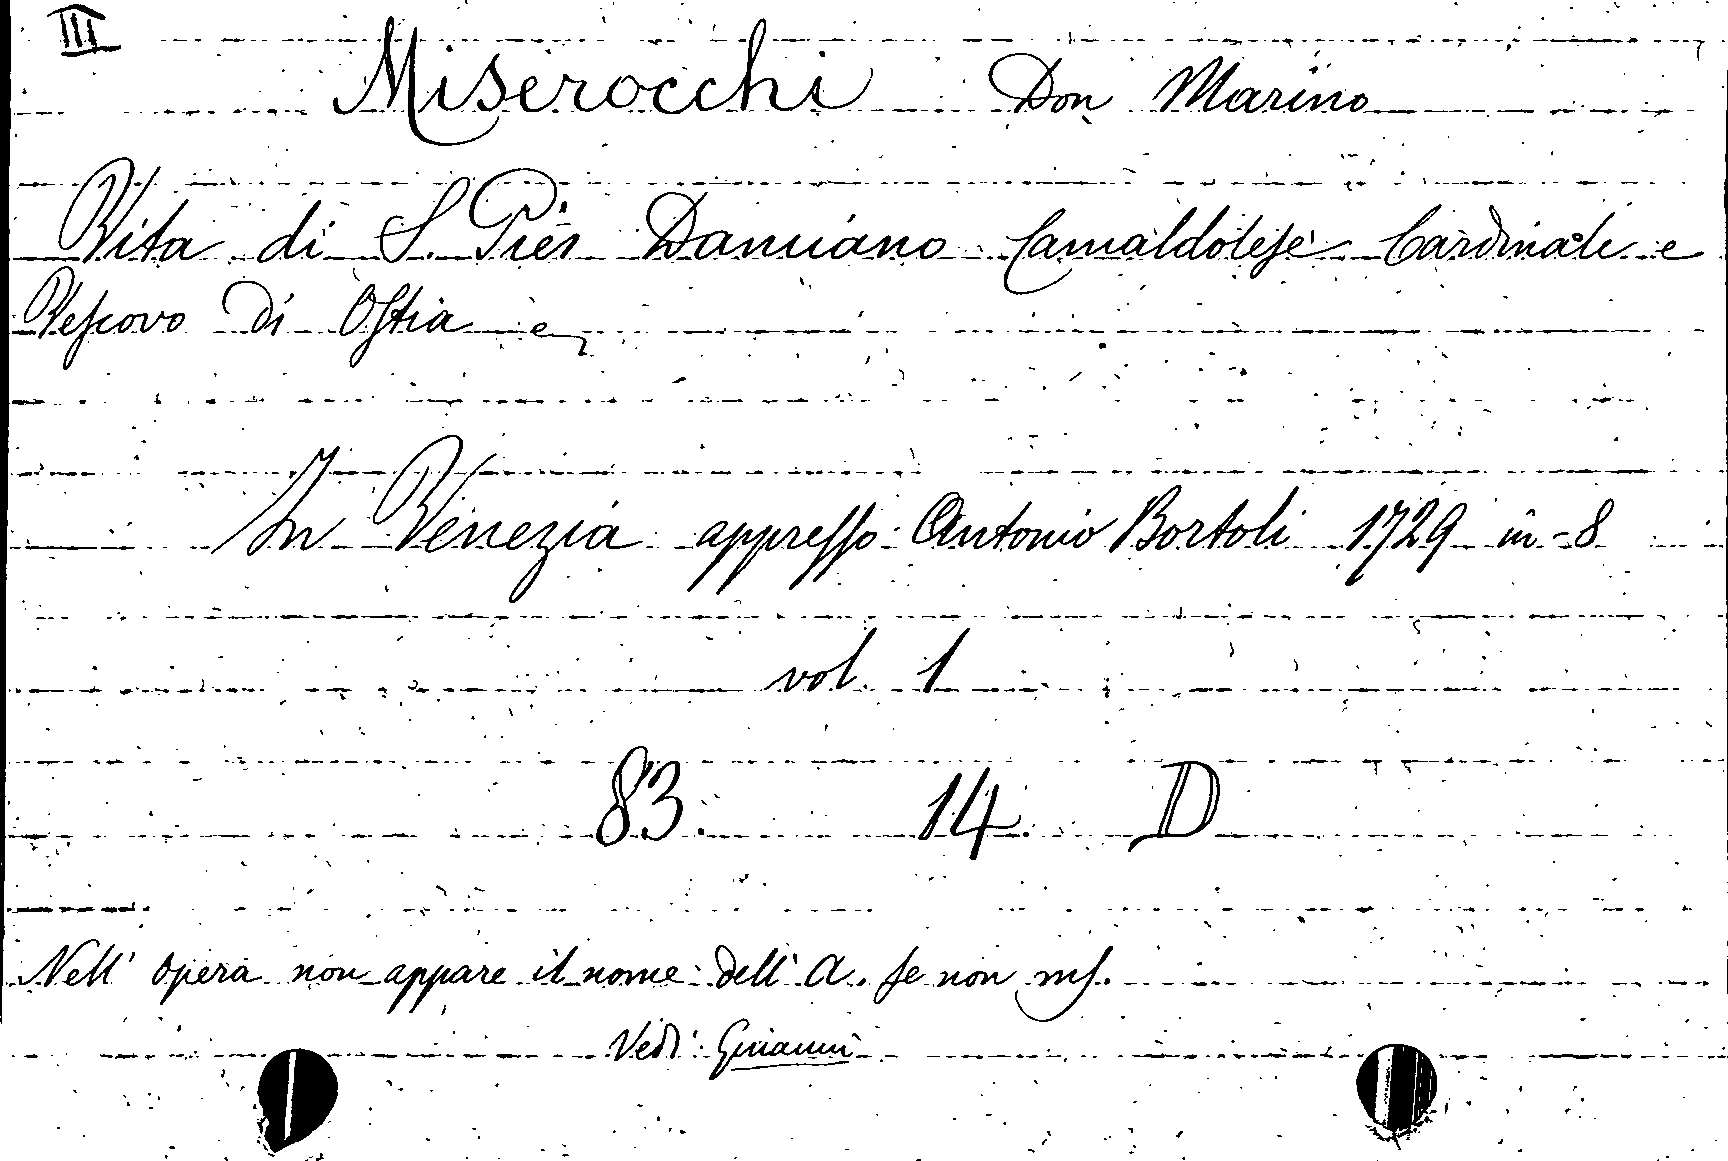 III
Miserocchi Don Marino
Vita di S. Pier Damiano Camaldolese Cardinale e
Vescovo di Ostia e
In Venezia appresso Antonio Bortoli 1729 in-8
vol. 1
83. 14. D
Nell' opera non appare il nome dell' A. se non ms.
Vedi